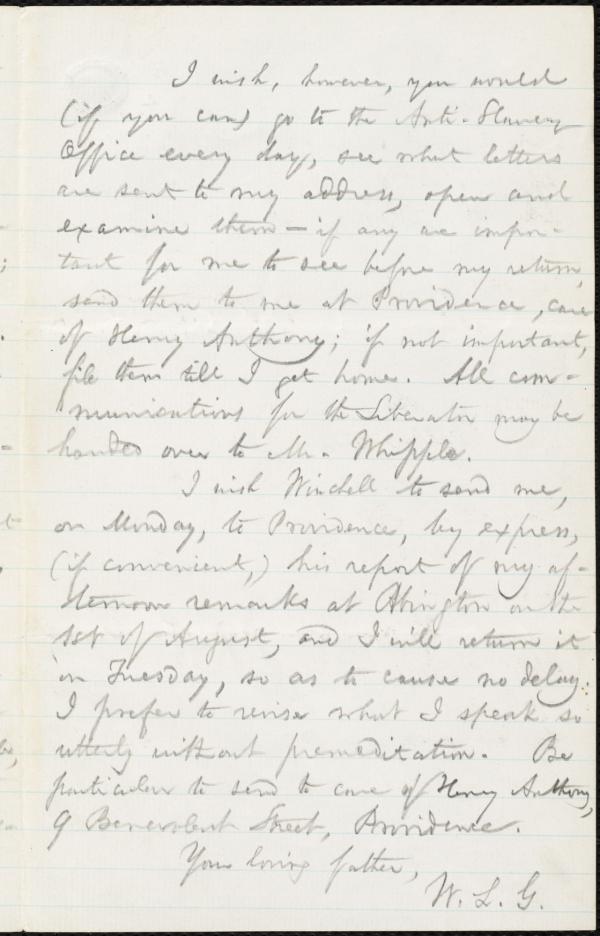 I wish, however, you would
(if you can) go to the Anti-Slavery
Office every day, see what letters
are sent to my address, open and
examine them — if any are impor-
tant for me to see before my return,
send them to me at Providence, care
of Henry Anthony; if not important,
file them till I get home. All com-
munications for the Liberator may be
handed over to Mr. Whipple.
I wish Winchell to send me,
on Monday, to Providence, by express,
(if convenient,) his report of my af-
ternoon remarks at Abington on the
1st of August, and I will return it
on Tuesday, so as to cause no delay.
I prefer to revise what I speak so
utterly without premeditation. Be
particular to send to care of Henry Anthony,
9 Benevolent Street, Providence.
Your loving father,
W. L. G.